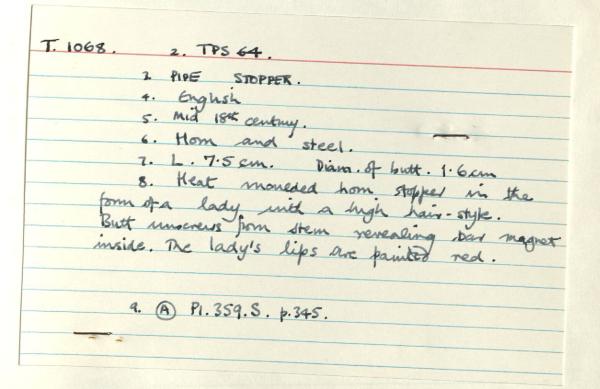 T. 1068. 2. TPS 64.
3. PIPE STOPPER.
4. English
5. Mid 18th century.
6. Horn and steel.
7. L. 7.5 cm. Diam. of butt. 1.6 cm
8. Heat moueded horn stopper in the
form of a lady with a high hair-style.
Butt unscrews from stem revealing bar magnet
inside. The lady's lips are painted red.
9. A Pl. 359. S. p. 345.